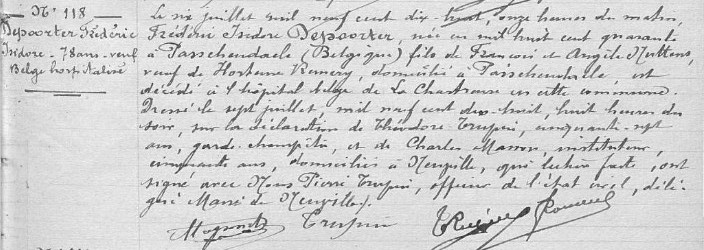 N° 118
Depoorter Frédéric
Isidore - 78 ans - veuf
Belge
Le six juillet mil neuf cent dix huit, onze heures du matin,
Frédéric Isidore Depoorter, né en mil huit cent quarante
à Passchendaele (Belgique) fils de François et Angèle
veuf de Hortense, domicilié à Passchendaele, est
décédé à l'hôpital belge de La Chartreuse en cette commune.
Dressé le sept juillet, mil neuf cent dix-huit, huit heures du
soir, sur la déclaration de Théodore Trupin, cinquante-sept
ans, garde-champêtre, et de Charles Masson, instituteur,
cinquante ans, domiciliés à Neuville, qui lecture faite, ont
signé avec Nous Pierre Trupin, officier de l'état civil, délé-
gué Mairie de Neuville.
Trupin